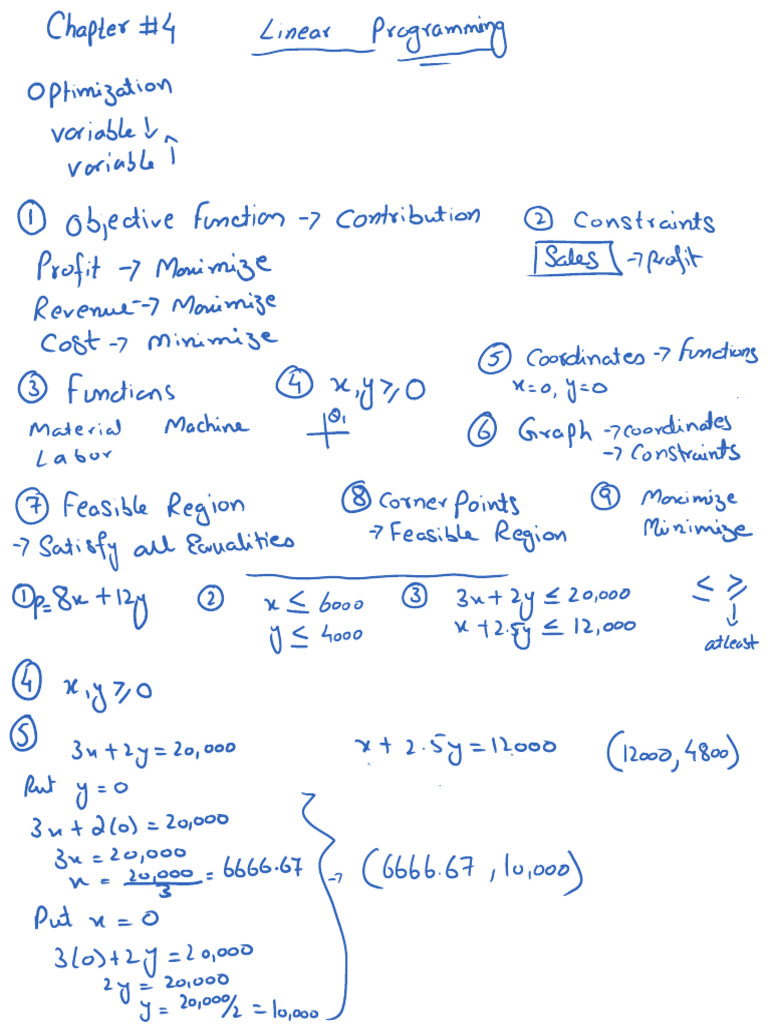 Chapter #4 Linear Programming
Optimization
variable ↓
variable ↑
① Objective Function → Contribution
Profit → Maximize
Revenue → Maximize
Cost → Minimize
② Constraints
Sales → Profit
③ Functions
Material Machine
Labor
④ x, y ≥ 0
Q1
⑤ Coordinates → Functions
x=0, y=0
⑥ Graph → coordinates
→ Constraints
⑦ Feasible Region
→ Satisfy all Equalities
⑧ Corner Points
→ Feasible Region
⑨ Maximize
Minimize
① P = 8x + 12y
② x ≤ 6000
y ≤ 4000
③ 3x + 2y ≤ 20,000
x + 2.5y ≤ 12,000
≤ ≥
↓
atleast
④ x, y ≥ 0
⑤ 3x + 2y = 20,000
Put y = 0
3x + 2(0) = 20,000
3x = 20,000
x = 20,000/3 = 6666.67
Put x = 0
3(0) + 2y = 20,000
2y = 20,000
y = 20,000/2 = 10,000
→ (6666.67, 10,000)
x + 2.5y = 12000 (12000, 4800)